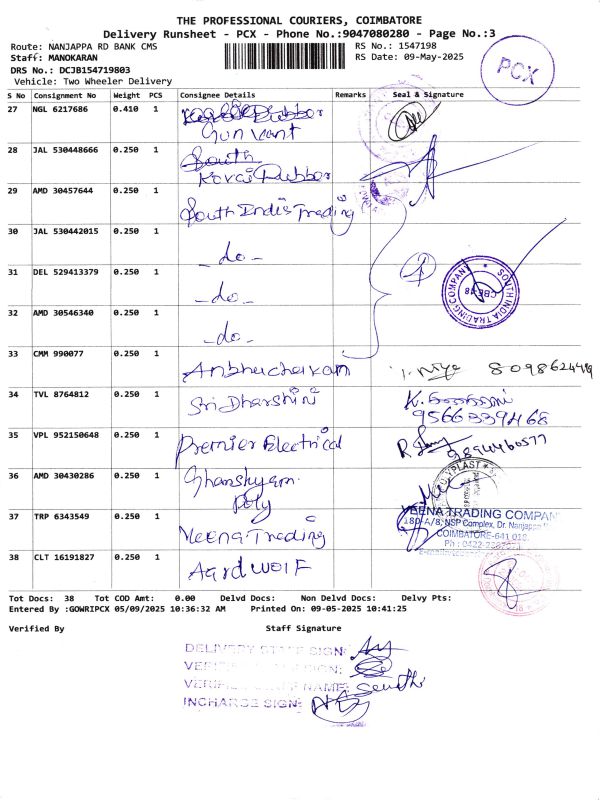 THE PROFESSIONAL COURIERS, COIMBATORE
Delivery Runsheet - PCX - Phone No.:9047080280 - Page No.:3
Route: NANJAPPA RD BANK CMS
RS No.: 1547198
Staff: MANOKARAN
RS Date: 09-May-2025
DRS No.: DCJB154719803
Vehicle: Two Wheeler Delivery
PCX
S No Consignment No Weight PCS Consignee Details Remarks Seal & Signature
27 NGL 6217686 0.410 1
Gun Vant
28 JAL 530448666 0.250 1 South
Kovai Rubber
29 AMD 30457644 0.250 1 South India Trading
30 JAL 530442015 0.250 1 -do-
31 DEL 529413379 0.250 1 -do-
SOUTH INDIA TRADING COMPANY
CBE-18
32 AMD 30546340 0.250 1 -do-
33 CMM 990077 0.250 1
34 TVL 8764812 0.250 1 Sri Dharshini
9566339468
35 VPL 952150648 0.250 1 Premier Electrical
9894460577
36 AMD 30430286 0.250 1 Ghanshyam
Poly
37 TRP 6343549 0.250 1 Veena Trading
VEENA TRADING COMPANY
180-A/8, NSP Complex, Dr. Nanjappa
COIMBATORE-641 018.
38 CLT 16191827 0.250 1 Aardwolf
Tot Docs: 38 Tot COD Amt: 0.00 Delvd Docs: Non Delvd Docs: Delvy Pts:
Entered By :GOWRIPCX 05/09/2025 10:36:32 AM Printed On: 09-05-2025 10:41:25
Verified By Staff Signature
DELIVERY STAFF SIGN:
INCHARGE SIGN: